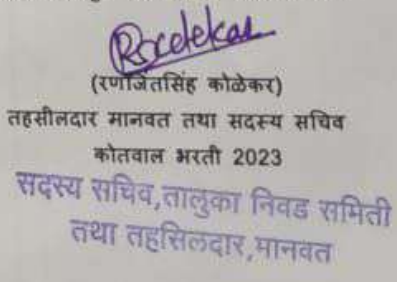 (रणजितसिंह कोळेकर)
तहसीलदार मानवत तथा सदस्य सचिव
कोतवाल भरती 2023
सदस्य सचिव,तालुका निवड समिती
तथा तहसिलदार,मानवत